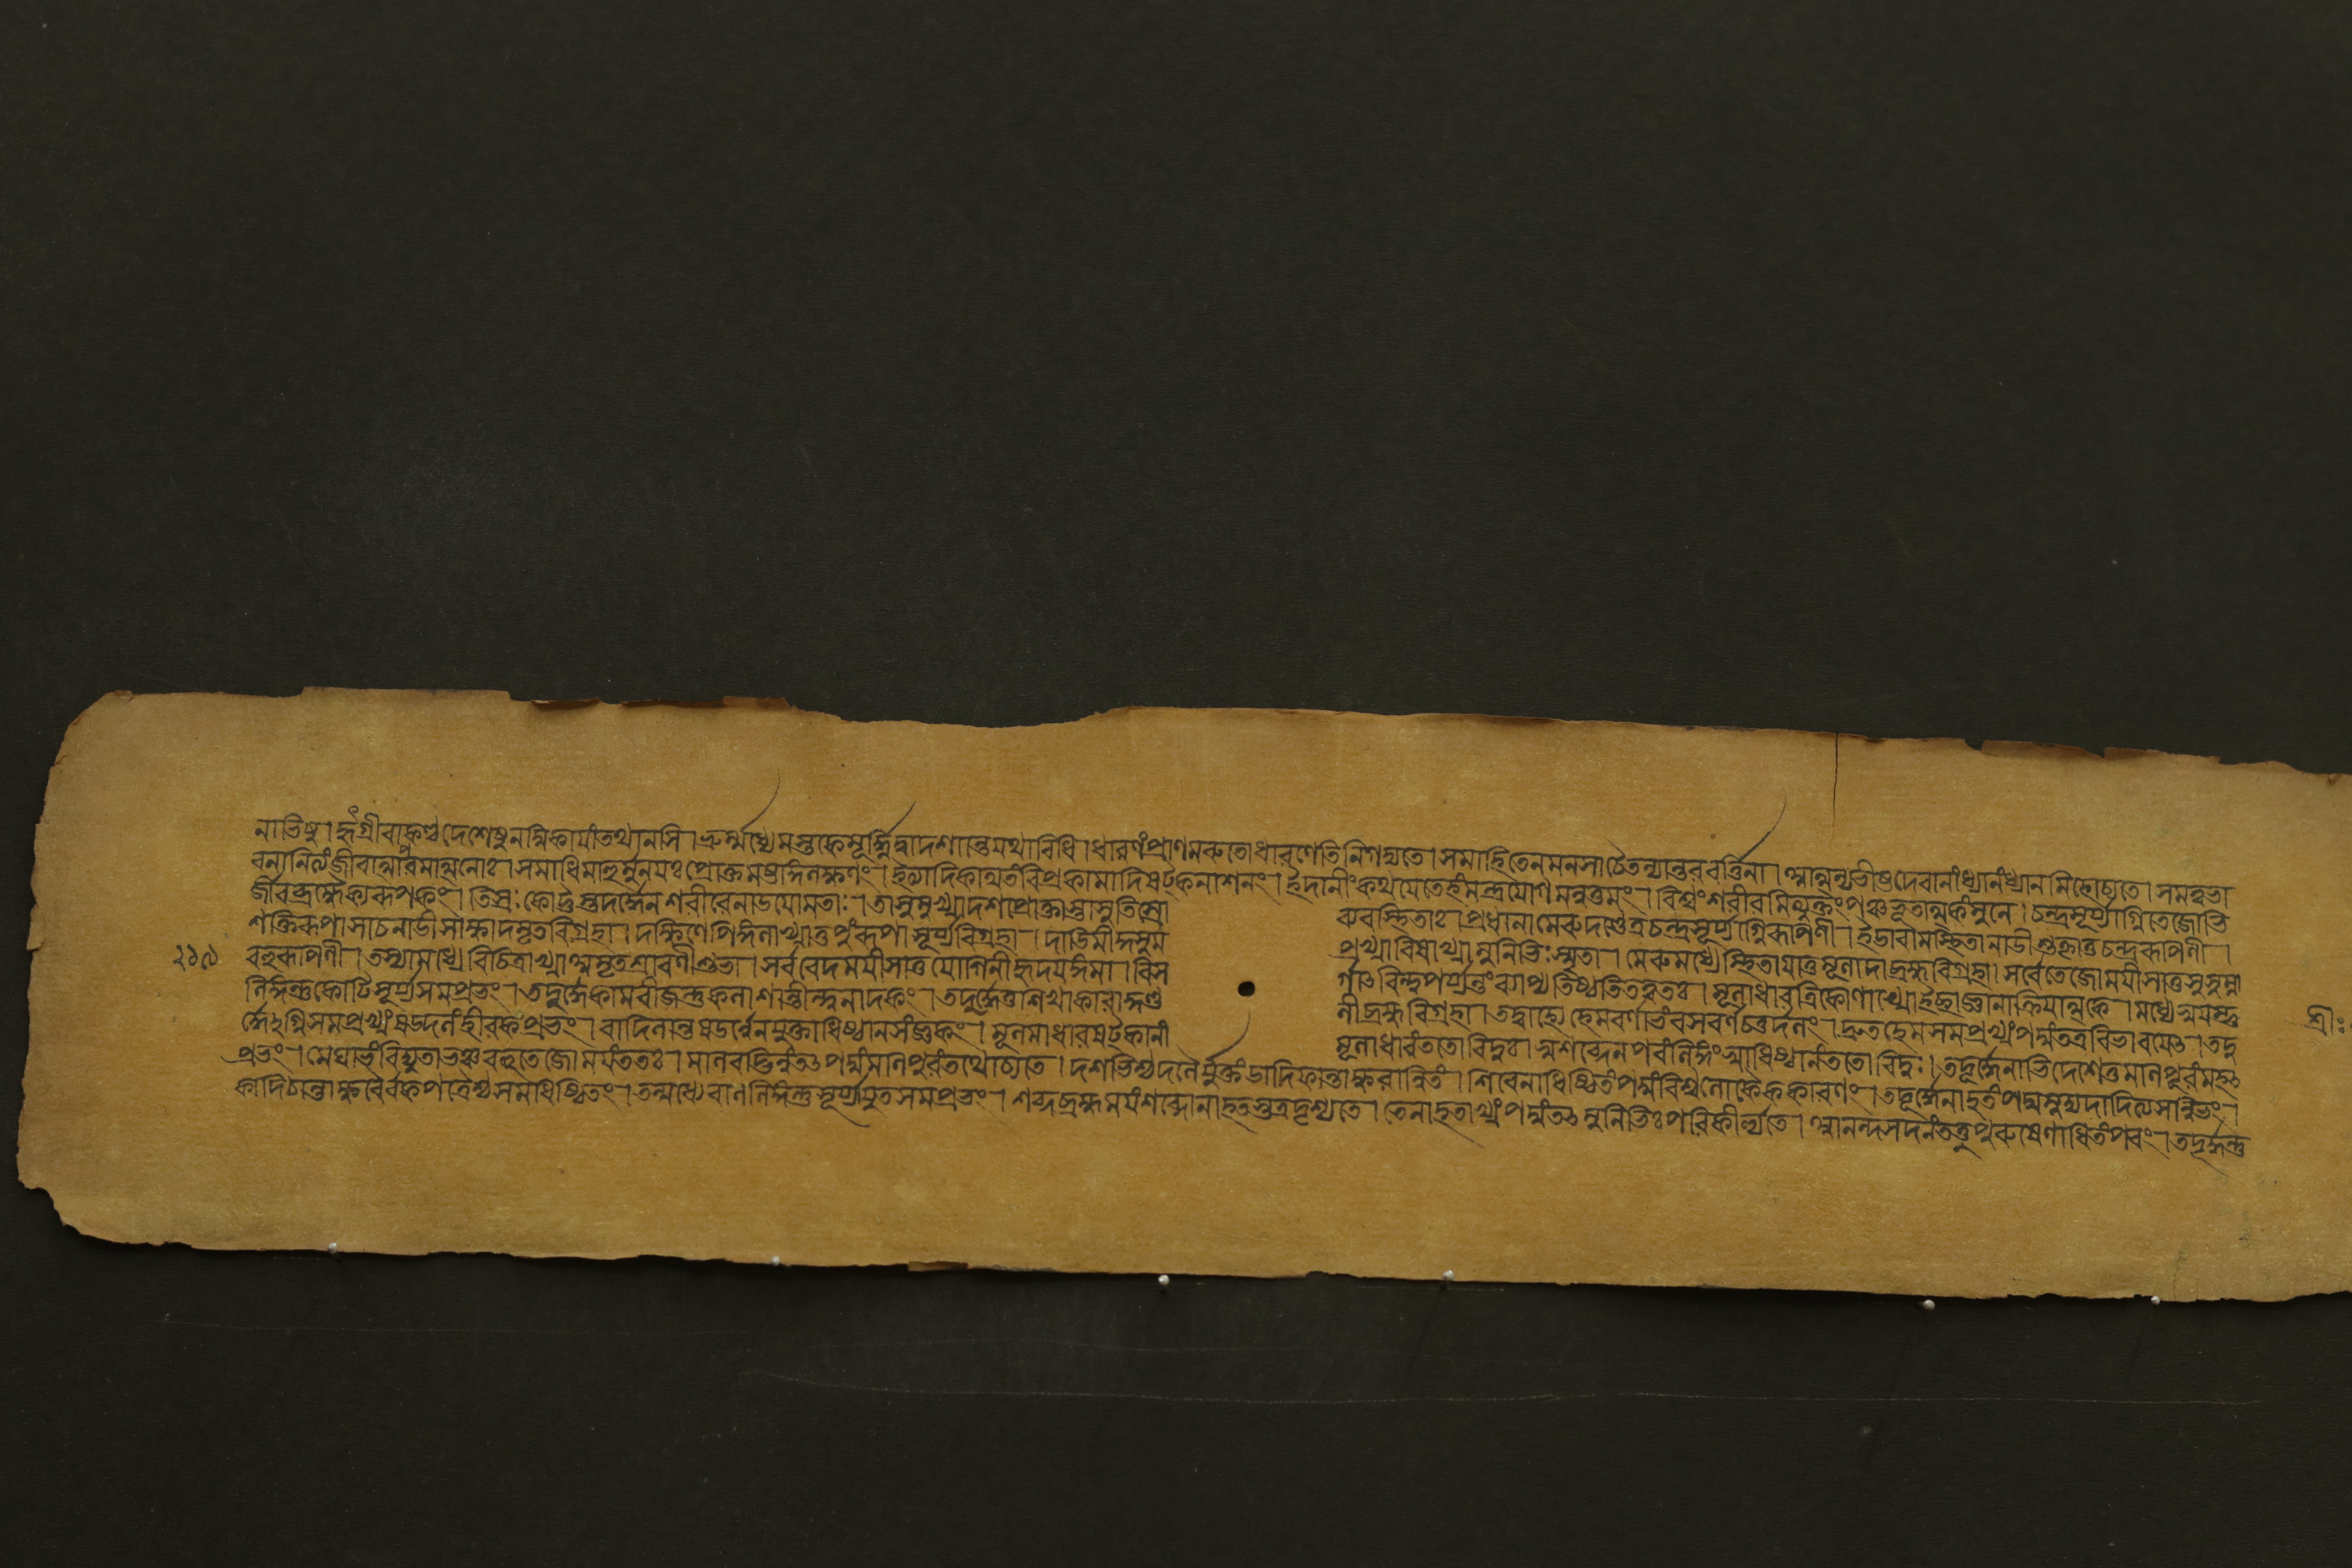 নাভিষু। হৃদ্গ্রীবাকণ্ঠদেশেষুলম্বিকায়াংতথানসি। ভ্রূর্মধ্যেমস্তকেমূর্দ্ধ্নিদ্বাদশান্তেযথাবিধি। ধারণংপ্রাণমরুতোধারণেতিনিগদ্যতে। সমাহিতেনমনসাচৈতন্যান্তরবর্ত্তিনা। আত্মন্যভীষ্টদেবানাংধ্যানংধ্যানমিহোচ্যতে। সমত্বভা
বনানিত্যংজীবাত্মপরমাত্মনোঃ। সমাধিমাহুর্মুনয়ঃপ্রোক্তমষ্টাঙ্গলক্ষণং। বিপ্রকামাদিষট্কনাশনং। ইদানীংকথয়েতেহংমন্ত্রযোগমনুত্তমং। বিশ্বংশরীরমিত্যুক্তংপঞ্চভূতাত্মকংমুনে। চন্দ্রসূর্য্যাগ্নিতেজোভি
র্জীবব্রহ্মৈক্যরূপকং। তিস্রঃকোট্যস্তদর্দ্ধেনশরীরেনাডয়োমতাঃ। তাসুমুখ্যাদশপ্রোক্তাস্তাসুতিস্রো ব্যবস্থিতাঃ। প্রধানামেরুদণ্ডেত্রচন্দ্রসূর্য্যাগ্নিরূপিণী। ইডাবামেস্থিতানাডীশুক্লাতুচন্দ্ররূপিণী।
শক্তিরূপাসাচনাডীসাক্ষাদমৃতবিগ্রহা। দক্ষিণেপিঙ্গলাখ্যাতুপুংরূপাসূর্য্যবিগ্রহা। দাডিমীকুসুম প্রখ্যাবিষাখ্যামুনিভিঃস্মৃতা। মেরুমধ্যেস্থিতাযাতুমূলাদাব্রহ্মবিগ্রহা। সর্বতেজোময়ীসাতুসুষুম্না
২১৯ বহুরূপিণী। তস্যামধ্যেবিচিত্রাখ্যাঅমৃতশ্রাবণীশুভা। সর্ববেদময়ীসাতুযোগিনীহৃদয়ঙ্গমা। বিস র্গাৎবিন্দুপর্য্যন্তংব্যাপ্যতিষ্ঠতিতত্ত্বতঃ। মূলাধারত্রিকোণাখ্যেইচ্ছাজ্ঞানাক্রিয়াত্মকে। মধ্যেস্বয়ম্ভু
লিঙ্গন্তুকোটিসূর্য্যসমপ্রভং। তদূর্দ্ধেকামবীজন্তুকলাশান্তীন্দুনাদকং। তদূর্দ্ধেতুশিখাকারাকুণ্ড লীব্রহ্মবিগ্রহা। তদ্বাহ্যেহেমবর্ণাভংবসবর্ণচতুর্দলং। দ্রুতহেমসমপ্রখ্যংপদ্মংতত্রবিভাবয়েৎ। তদূ
র্দ্ধেঽগ্নিসমপ্রখ্যংষড্দলংহীরকপ্রভং। বাদিলান্তষডর্ণেনযুক্তাধিষ্ঠানসংজ্ঞকং। মূলমাধারষট্কানাং মূলাধারংততোবিদুঃ। স্বশব্দেনপরংলিঙ্গংস্বাধিষ্ঠানংততোবিদুঃ। তদূর্দ্ধেনাভিদেশেতুমণিপূরংমহৎ শ্রীঃ
প্রভং। মেঘাভংবিদ্যুতাভঞ্চবহুতেজোময়ংততঃ। মণিবদ্ভিন্নংতৎপদ্মংমণিপূরংতথোচ্যতে। দশভিশ্চদলৈর্যুক্তংডাদিফান্তাক্ষরান্বিতং। শিবেনাধিষ্ঠিতংপদ্মংবিশ্বলোকৈককারণং। তদূর্দ্ধেনাহতংপদ্মমুদ্যদাদিত্যসন্নিভং।
কাদিঠান্তাক্ষরৈরর্কপত্রৈশ্চসমধিষ্ঠিতং। তন্মধ্যেবাণলিঙ্গন্তুসূর্য্যাযুতসমপ্রভং। শব্দব্রহ্মময়ংশব্দোনাহতস্তত্রদৃশ্যতে। তেনাহতাখ্যংপদ্মংতৎমুনিভিঃপরিকীর্ত্ত্যতে। আনন্দসদনংতত্তুপুরুষেণাধিতংপরং। তদূর্দ্ধন্তু